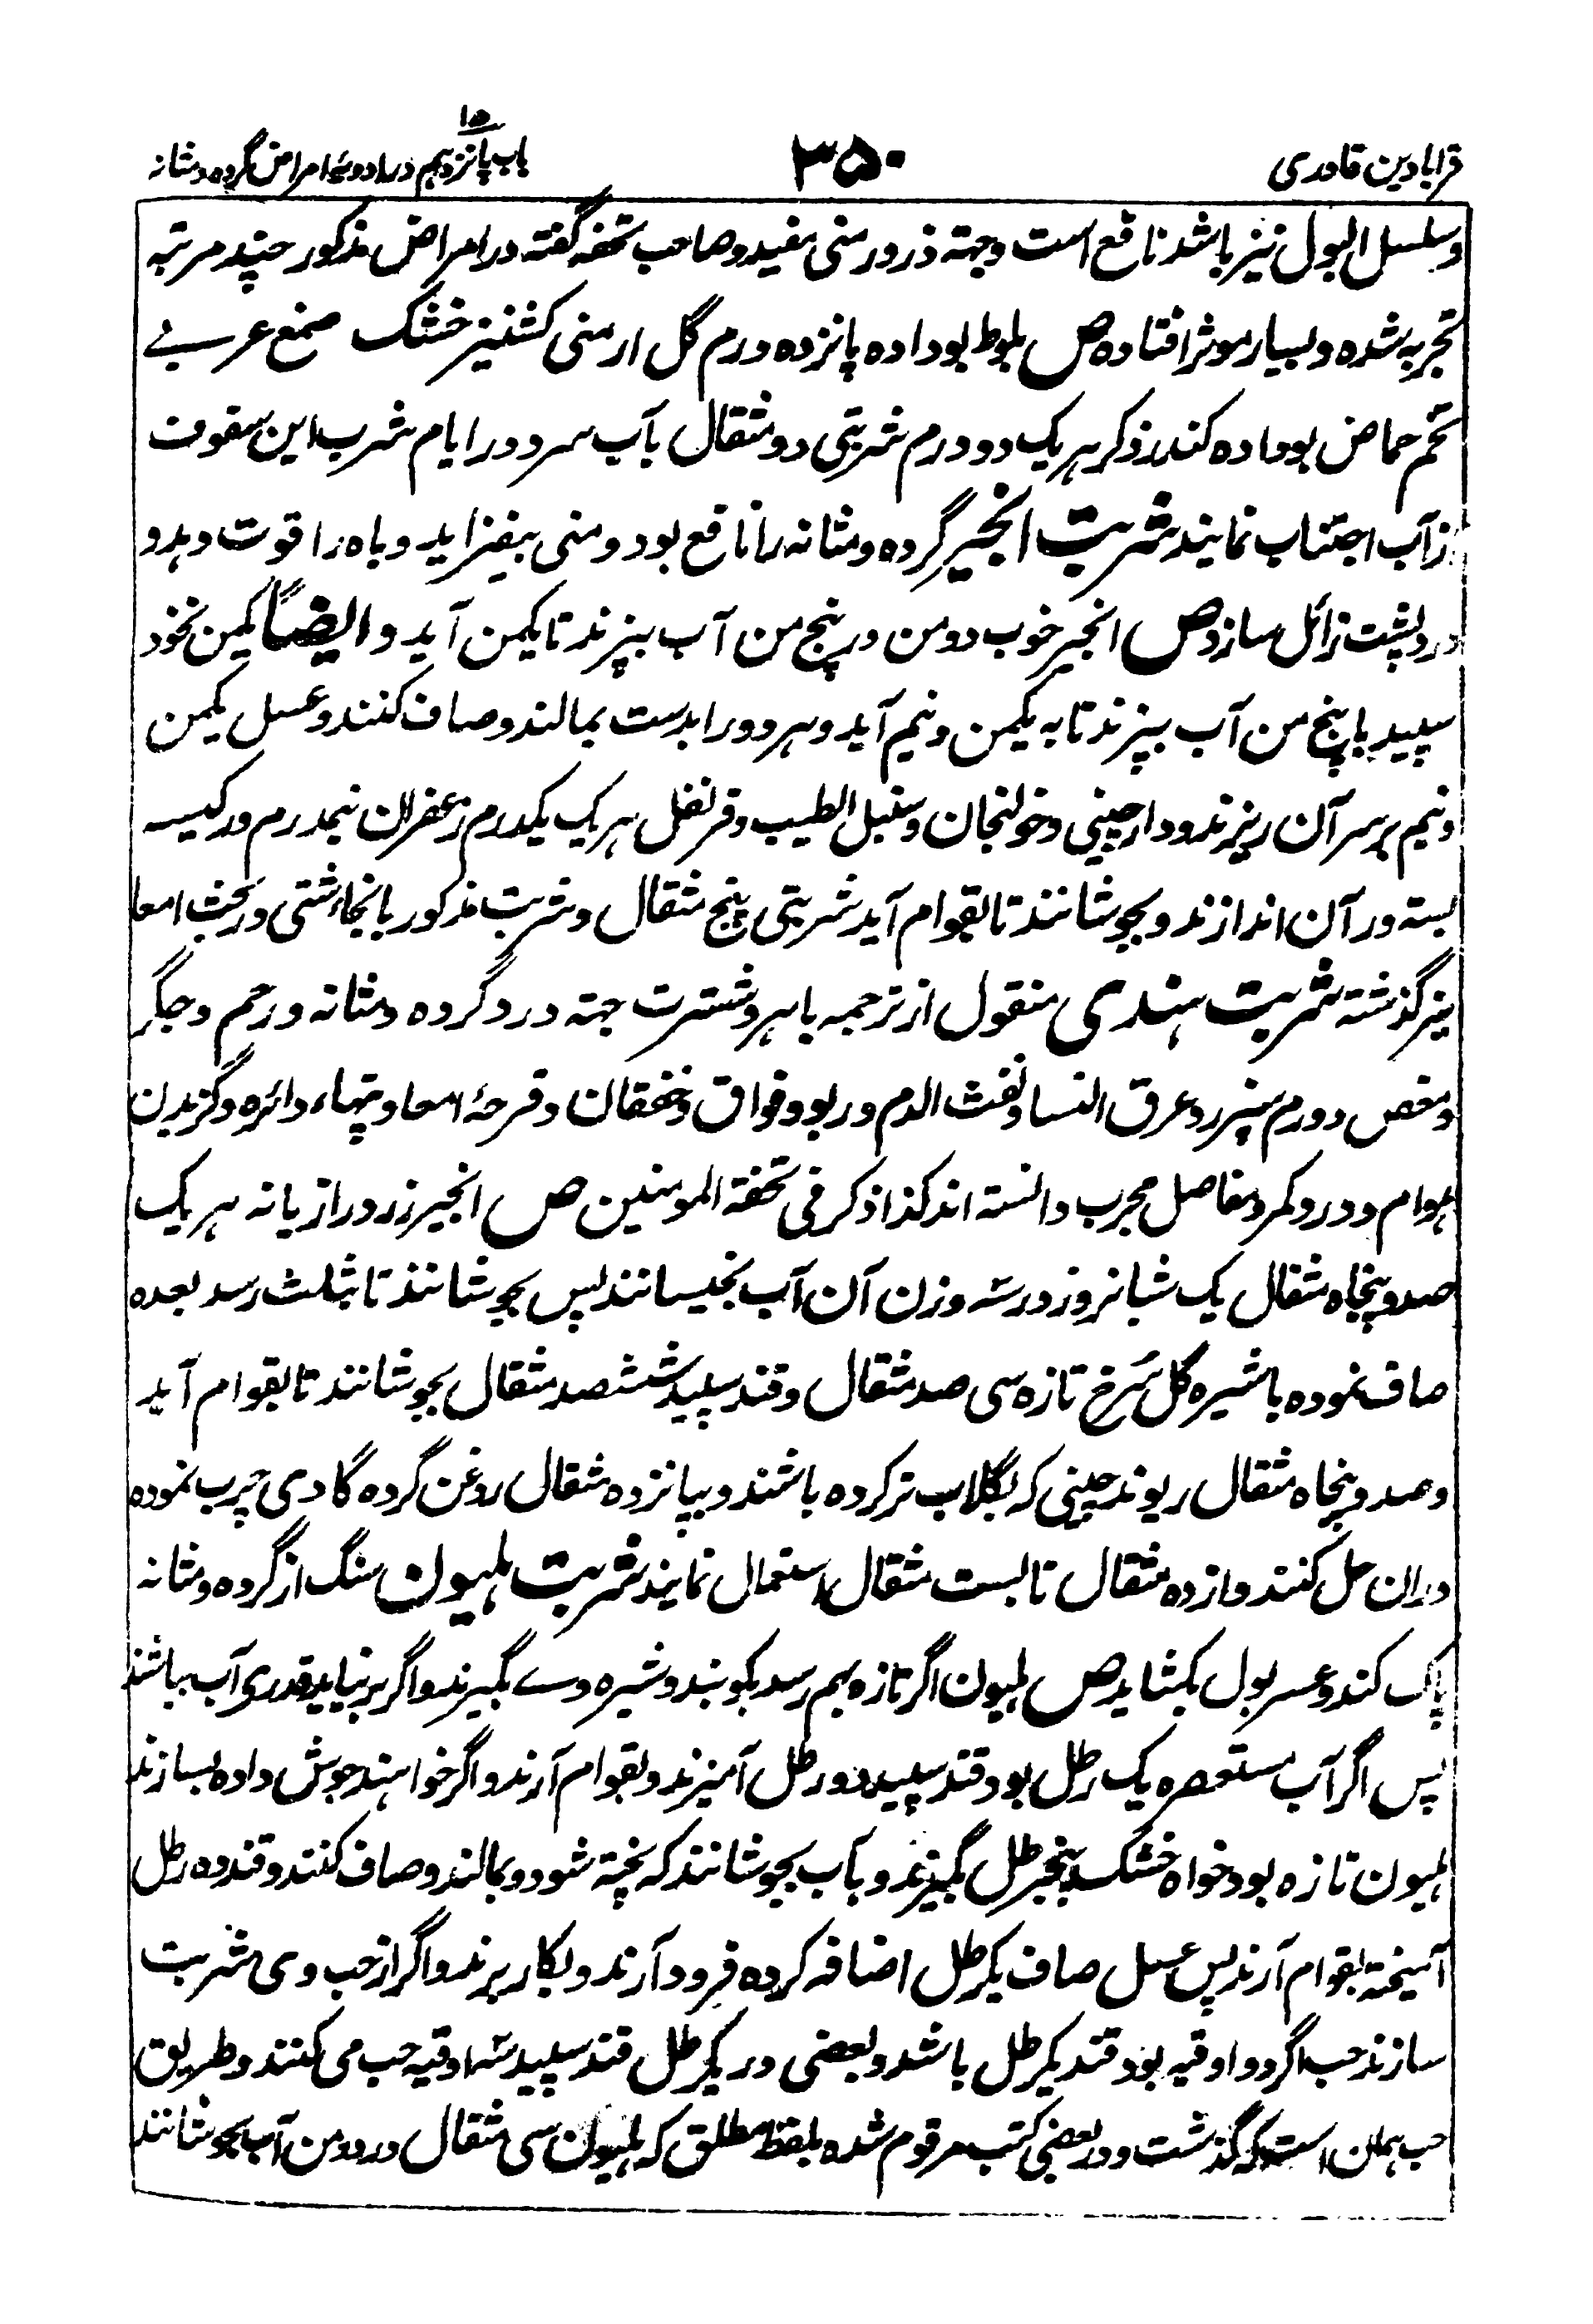 قرابادین قادری ۳۵۰ باب پانزدهم در ادویهٔ امراض گرده و مثانه
۱۵
و سلسل البول نیز باشد نافع است و جهته ذرور منی مفید و صاحب تحفه گفته در امراض مذکور چند مرتبه
تجربه شده و بسیار موثر افتاده ص بلوط بوداده پانزده درم گل ارمنی کشنیز خشک صمغ عربے
تخم حماض بوداده کندر ذکر هریک دو درم شربتی دو مثقال بآب سرد و در ایام شرب این سفوف
از آب اجتناب نمایند شربت انجیر گرده و مثانه را نافع بود و منی بیفزاید و باه را قوت دهد و
درد پشت زائل سازد ص انجیر خوب دو من در پنج من آب بپزند تا یکمن آید و ایضاً یکمن نخود
سپید با پنج من آب بپزند تا به یکمن و نیم آید و هر دو را بدست بمالند و صاف کنند و عسل یکمن
و نیم بر سر آن ریزند و دارچینی و خولنجان و سنبل الطیب و قرنفل هریک یکدرم زعفران نیمدرم در کیسه
بسته در آن اندازند و بجوشانند تا بقوام آید شربتی پنج مثقال و شربت مذکور بانحاء شتی در بحث امعا
نیز گذشته شربت هندی منقول از ترجمه باهر و شسترت جهته درد گرده و مثانه و رحم و جگر
و مغص و ورم سپرز و عرق النسا و نفث الدم و ربو و فواق و خفقان و قرحهٔ امعا و تپهاء دائره و گزیدن
هوام و درد کمر و مفاصل مجرب دانسته اند کذا ذکر فی تحفة المومنین ص انجیر زرد رازیانه هریک
صد و پنجاه مثقال یک شبانروز در سه وزن آن آب بخیسانند پس بجوشانند تا بثلث رسد بعده
صاف نموده با شیره گل سُرخ تازه سی صد مثقال و قند سپید ششصد مثقال بجوشانند تا بقوام آید
و صد و پنجاه مثقال ریوند چینی که بگلاب تر کرده باشند و بپانزده مثقال روغن گرده گاوی چرب نموده
دران حل کنند و از ده مثقال تا بست مثقال استعمال نمایند شربت هلیون سنگ از گرده و مثانه
پاک کند و عسر بول بکشاید ص هلیون اگر تازه بهم رسد بکوبند و شیره وے بگیرند و اگر برنیاید قدری آب بپاشند
پس اگر آب مستعصره یک رطل بود قند سپید دو رطل آمیزند و بقوام آرند و اگر خواهند جوش داده بسازند
هلیون تازه بود خواه خشک پنجرطل بگیرند و بآب بجوشانند که پخته شود و بمالند و صاف کنند و قند ده رطل
آمیخته بقوام آرند پس عسل صاف یکرطل اضافه کرده فرود آرند و بکار برند و اگر از حب وی شربت
سازند حب اگر دو اوقیه بود قند یکرطل باشد و بعضی در یکرطل قند سپید سه اوقیه حب می کنند و طریق
حب همان است که گذشت و در بعضی کتب مرقوم شده بلفظ مطلق که هلیون سی مثقال در دو من آب بجوشانند